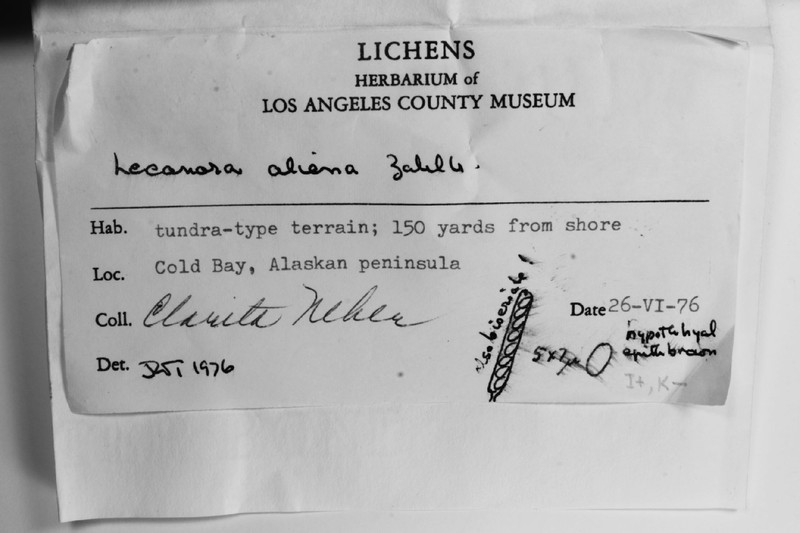 LICHENS
HERBARIUM of
LOS ANGELES COUNTY MUSEUM
Lecanora aliena Zahlb.
Hab. tundra-type terrain; 150 yards from shore
Loc. Cold Bay, Alaskan peninsula
Coll. Clarita Nehen
Date 26-VI-76
Det. 1976
5x7µ
hypoth hyal
epith brown
I+, K-